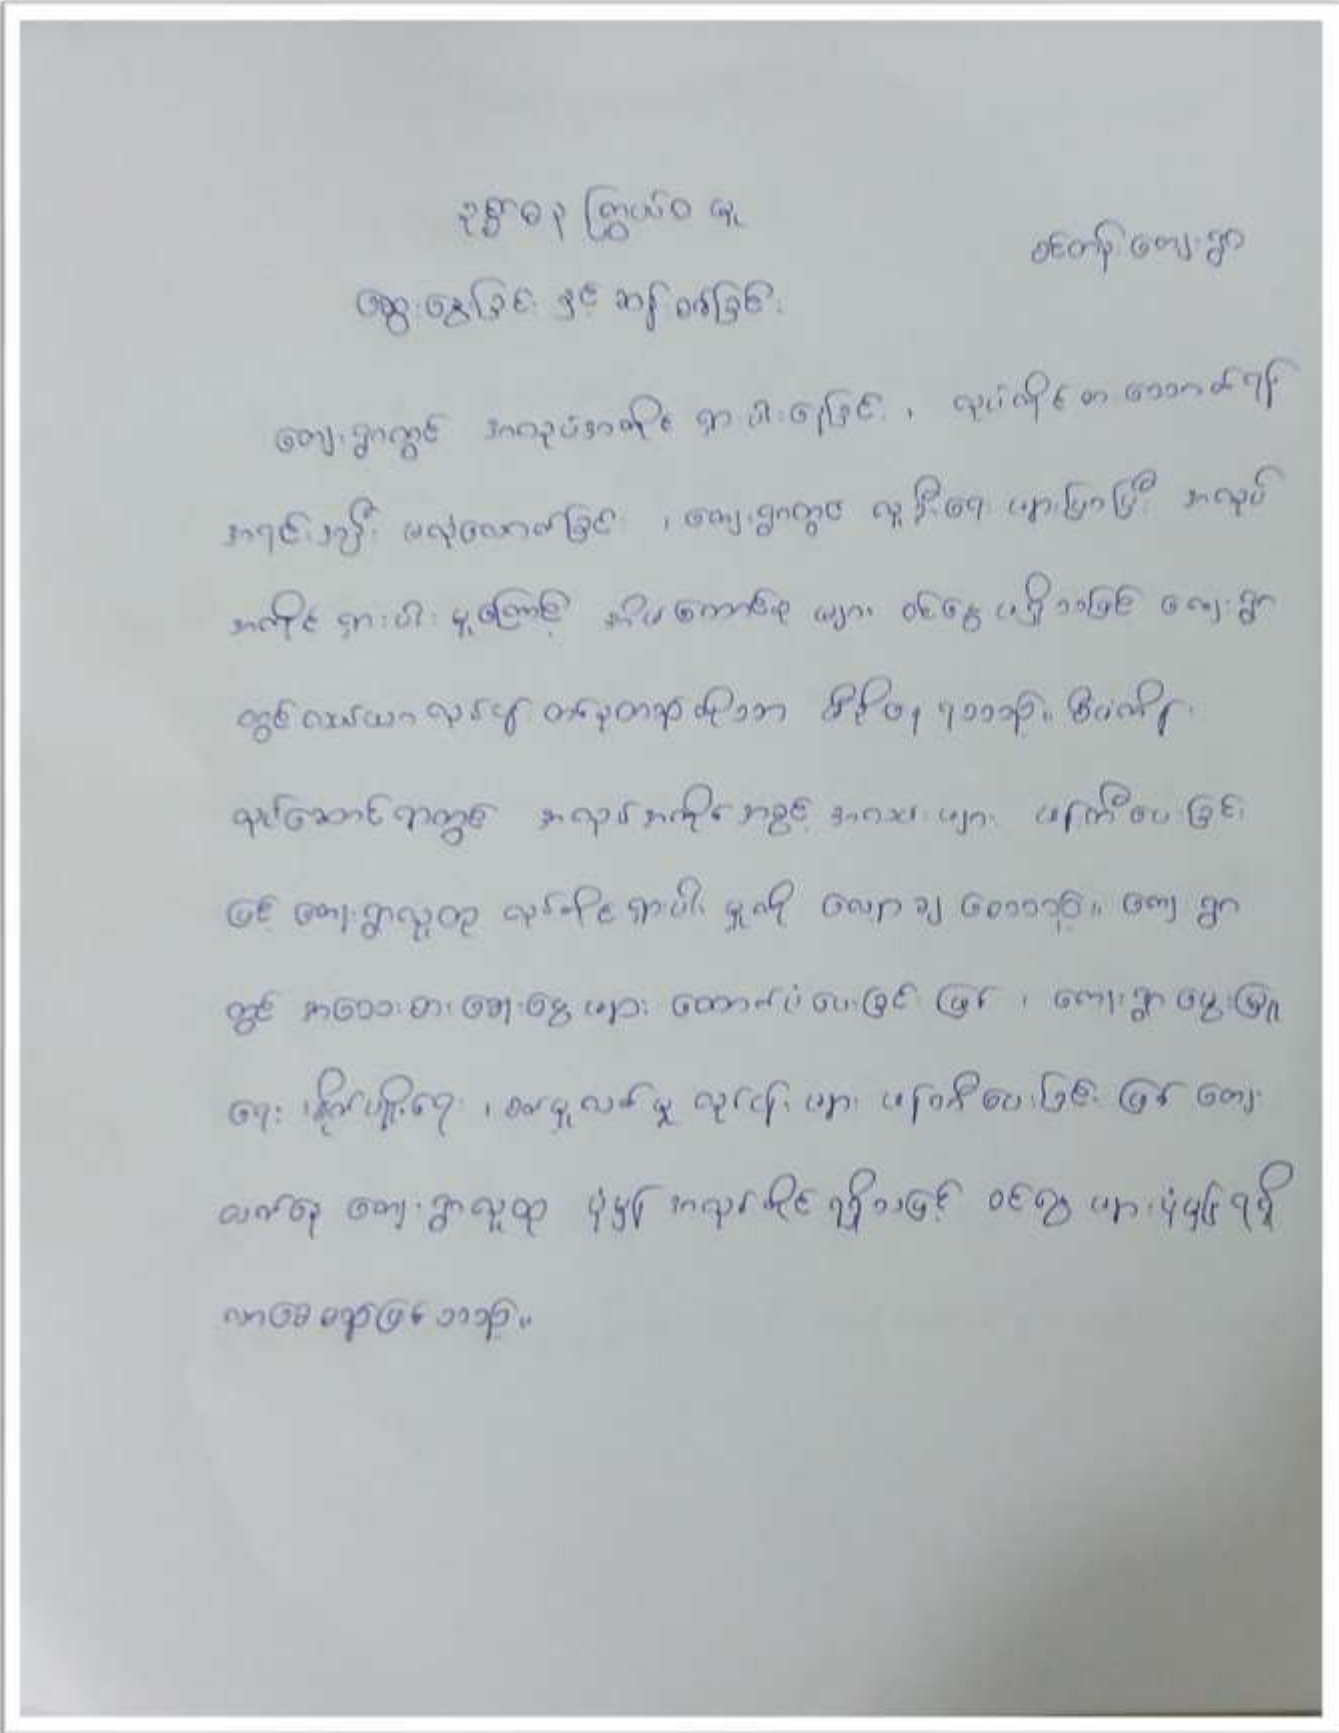 ဥစ္စာဓန ကြွယ်ဝ မှု
ကျေးရွာ
ဆွေးနွေးခြင်း နှင့် ဆန်းစစ်ခြင်း
ကျေးရွာတွင် အလုပ်အကိုင် ရှားပါးနေခြင်း ၊ လုပ်ကိုင်စားသောက်ရန်
အရင်းအနှီး မလုံလောက်ခြင်း ၊ ကျေးရွာတွင် လူဦးရေ များပြားပြီး အလုပ်
အကိုင် ရှားပါး မှုကြောင့် အိမ်ထောင်စု များ ဝင်ငွေ မရှိသဖြင့် ကျေးရွာ
တွင် လယ်ယာလုပ်ငန်း တစ်ခုတည်းကိုသာ မှီခိုနေ ရသည်။ စီမံကိန်း
လုပ်ဆောင်ရာတွင် အလုပ်အကိုင် အခွင့် အလမ်း များ ဖန်တီးပေးခြင်း
ဖြင့် ကျေးရွာလူထု လုပ်ကိုင် ရှားပါး မှုကို လျော့ချ စေသည်။ ကျေးရွာ
တွင် အသေးစား ချေးငွေ များ ထောက်ပံ့ပေးခြင်း ဖြစ် ၊ ကျေးရွာ မွေးမြူ
ရေး ၊ စိုက်ပျိုးရေး ၊ စက်မှုလက်မှု လုပ်ငန်း များ ဖန်တီးပေးခြင်း ဖြစ် ကျေး
လက်နေ ကျေးရွာလူထု ပုံမှန် အလုပ်ကိုင် ရရှိသဖြင့် ဝင်ငွေ များ ပုံမှန် ရရှိ
လာစေ မည်ဖြစ်သည်။